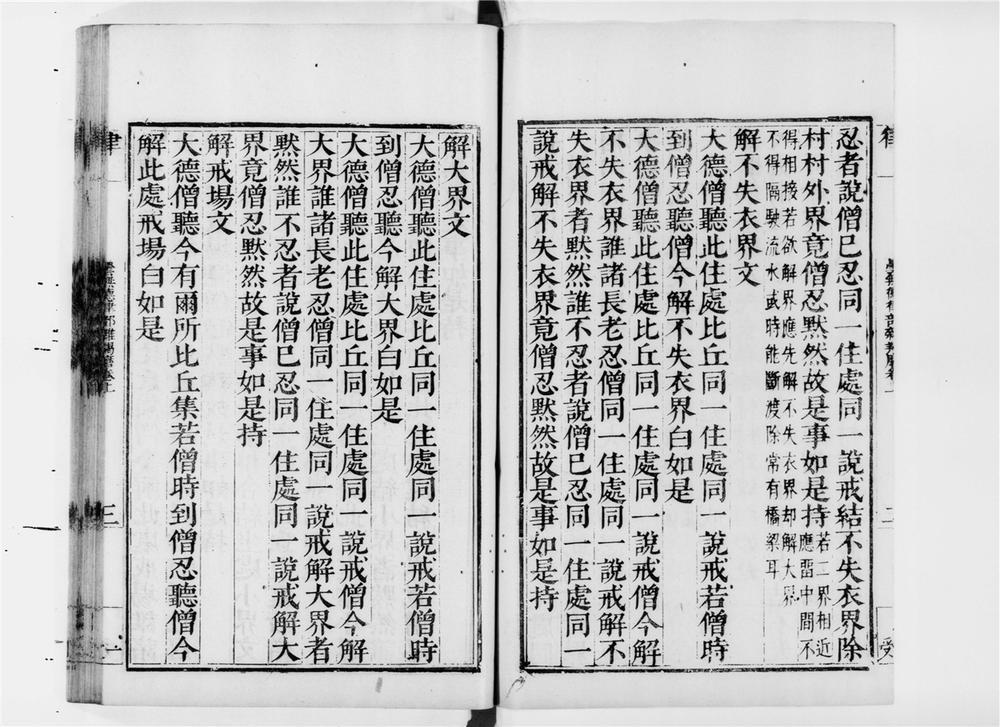 忍者說僧已忍同一住處同一說戒結不失衣界除
村村外界竟僧忍黙然故是事如是持若二界相近
應畱中間不
得相接若欲解界應先解不失衣界却解大界
不得隔駛流水或時能斷渡除常有橋梁耳
解不失衣界文
大德僧聽此住處比丘同一住處同一說戒若僧時
到僧忍聽僧今解不失衣界白如是
大德僧聽此住處比丘同一住處同一說戒僧今解
不失衣界誰諸長老忍僧同一住處同一說戒解不
失衣界者黙然誰不忍者說僧已忍同一住處同一
說戒解不失衣界竟僧忍黙然故是事如是持
律
二
受
解大界文
大德僧聽此住處比丘同一住處同一說戒若僧時
到僧忍聽今解大界白如是
大德僧聽此住處比丘同一住處同一說戒僧今解
大界誰諸長老忍僧同一住處同一說戒解大界者
黙然誰不忍者說僧已忍同一住處同一說戒解大
界竟僧忍黙然故是事如是持
解戒場文
大德僧聽今有爾所比丘集若僧時到僧忍聽僧今
解此處戒場白如是
律
三